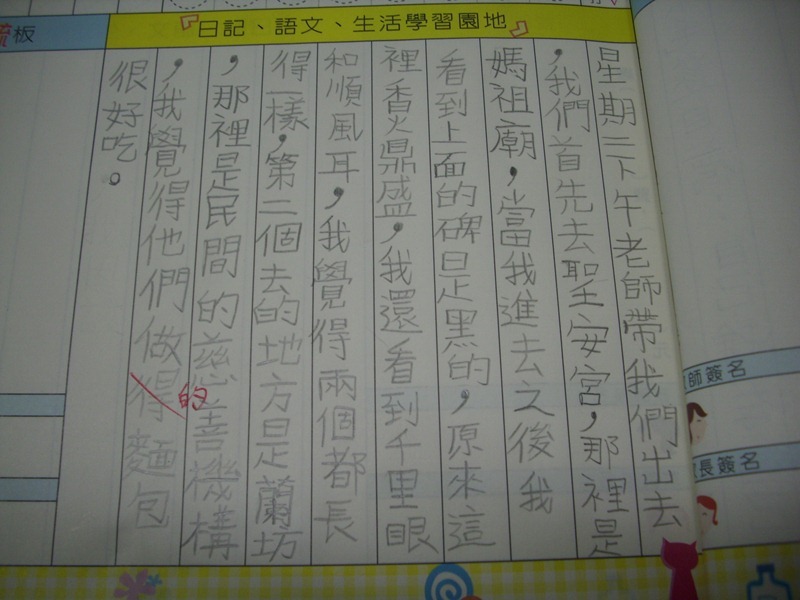 『日記、語文、生活學習園地』
星期三下午老師帶我們出去
，我們首先去聖安宮，那裡是
媽祖廟，當我進去之後我
看到上面的碑是黑的，原來這
裡香火鼎盛，我還看到千里眼
和順風耳，我覺得兩個都長
得一樣，第二個去的地方是蘭坊
，那裡是民間的慈善機構
，我覺得他們做得麵包
的
很好吃。
板
師簽名
長簽名